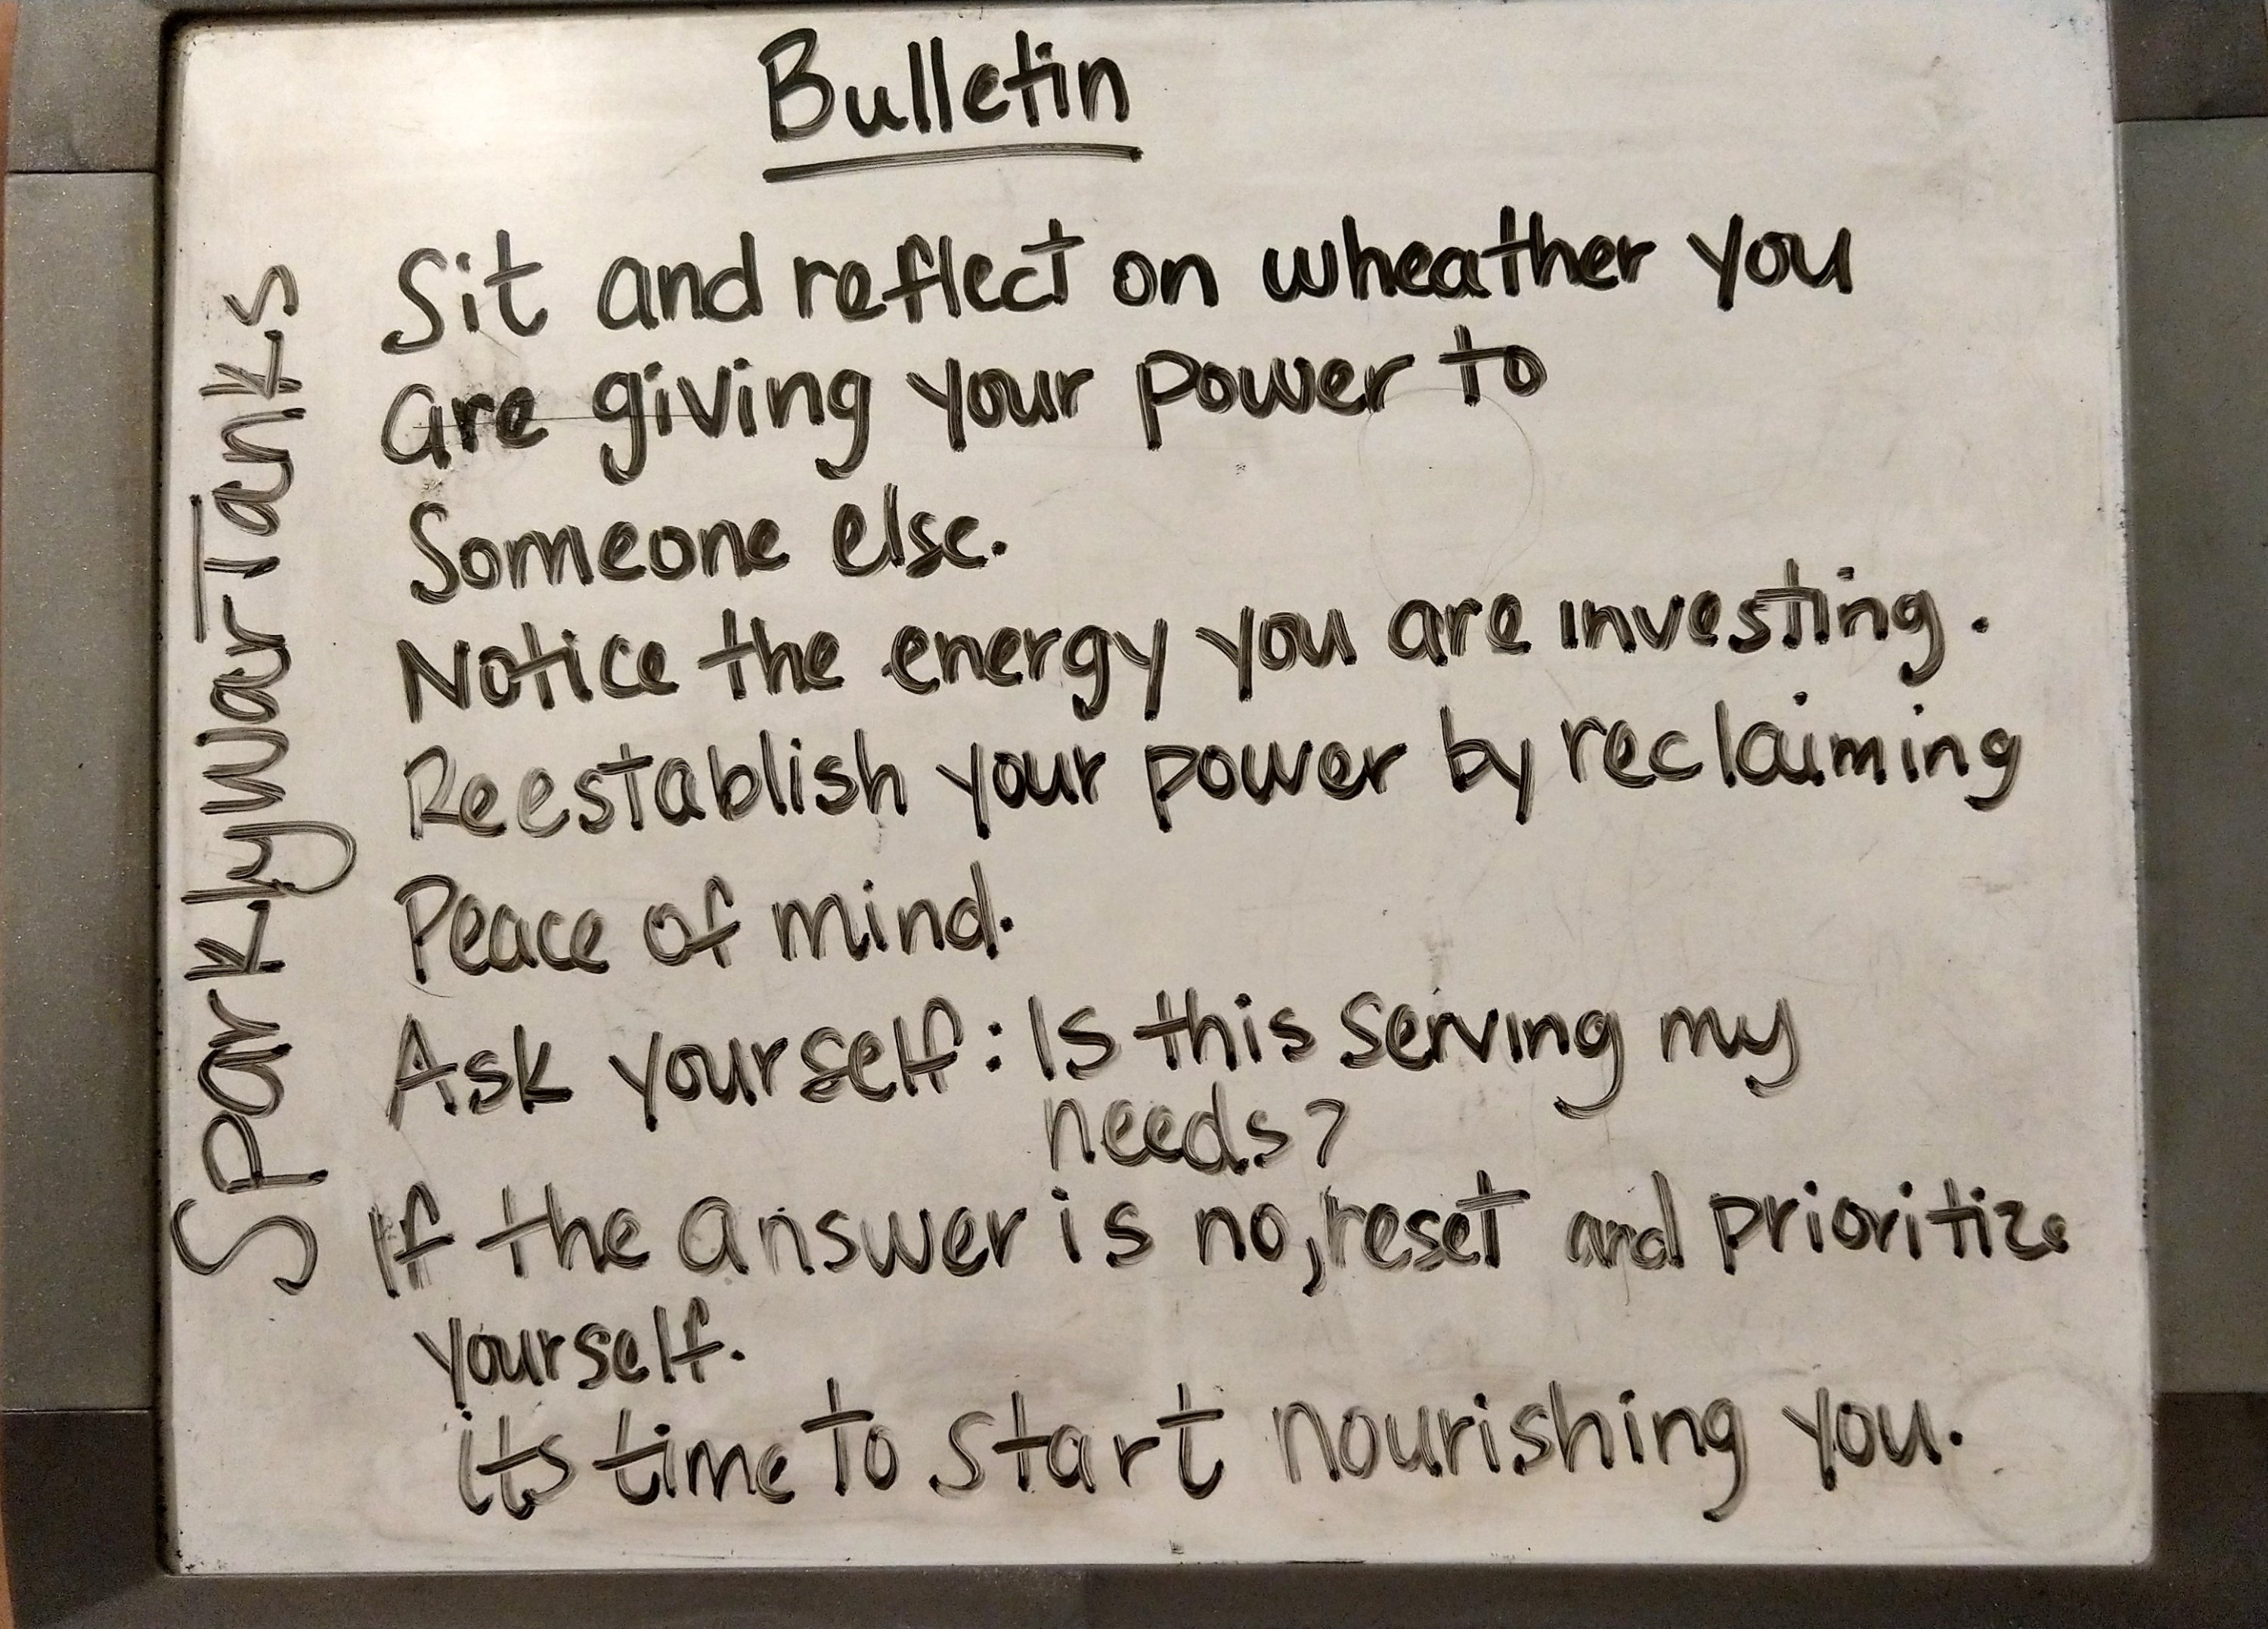 Bulletin
Sit and reflect on wheather you
are giving your power to
Someone else.
Notice the energy you are investing.
Reestablish your power by reclaiming
Peace of mind.
Ask yourself: Is this serving my
needs?
If the answer is no, reset and prioritize
yourself.
its time to start nourishing you.
SparklyWarTanks